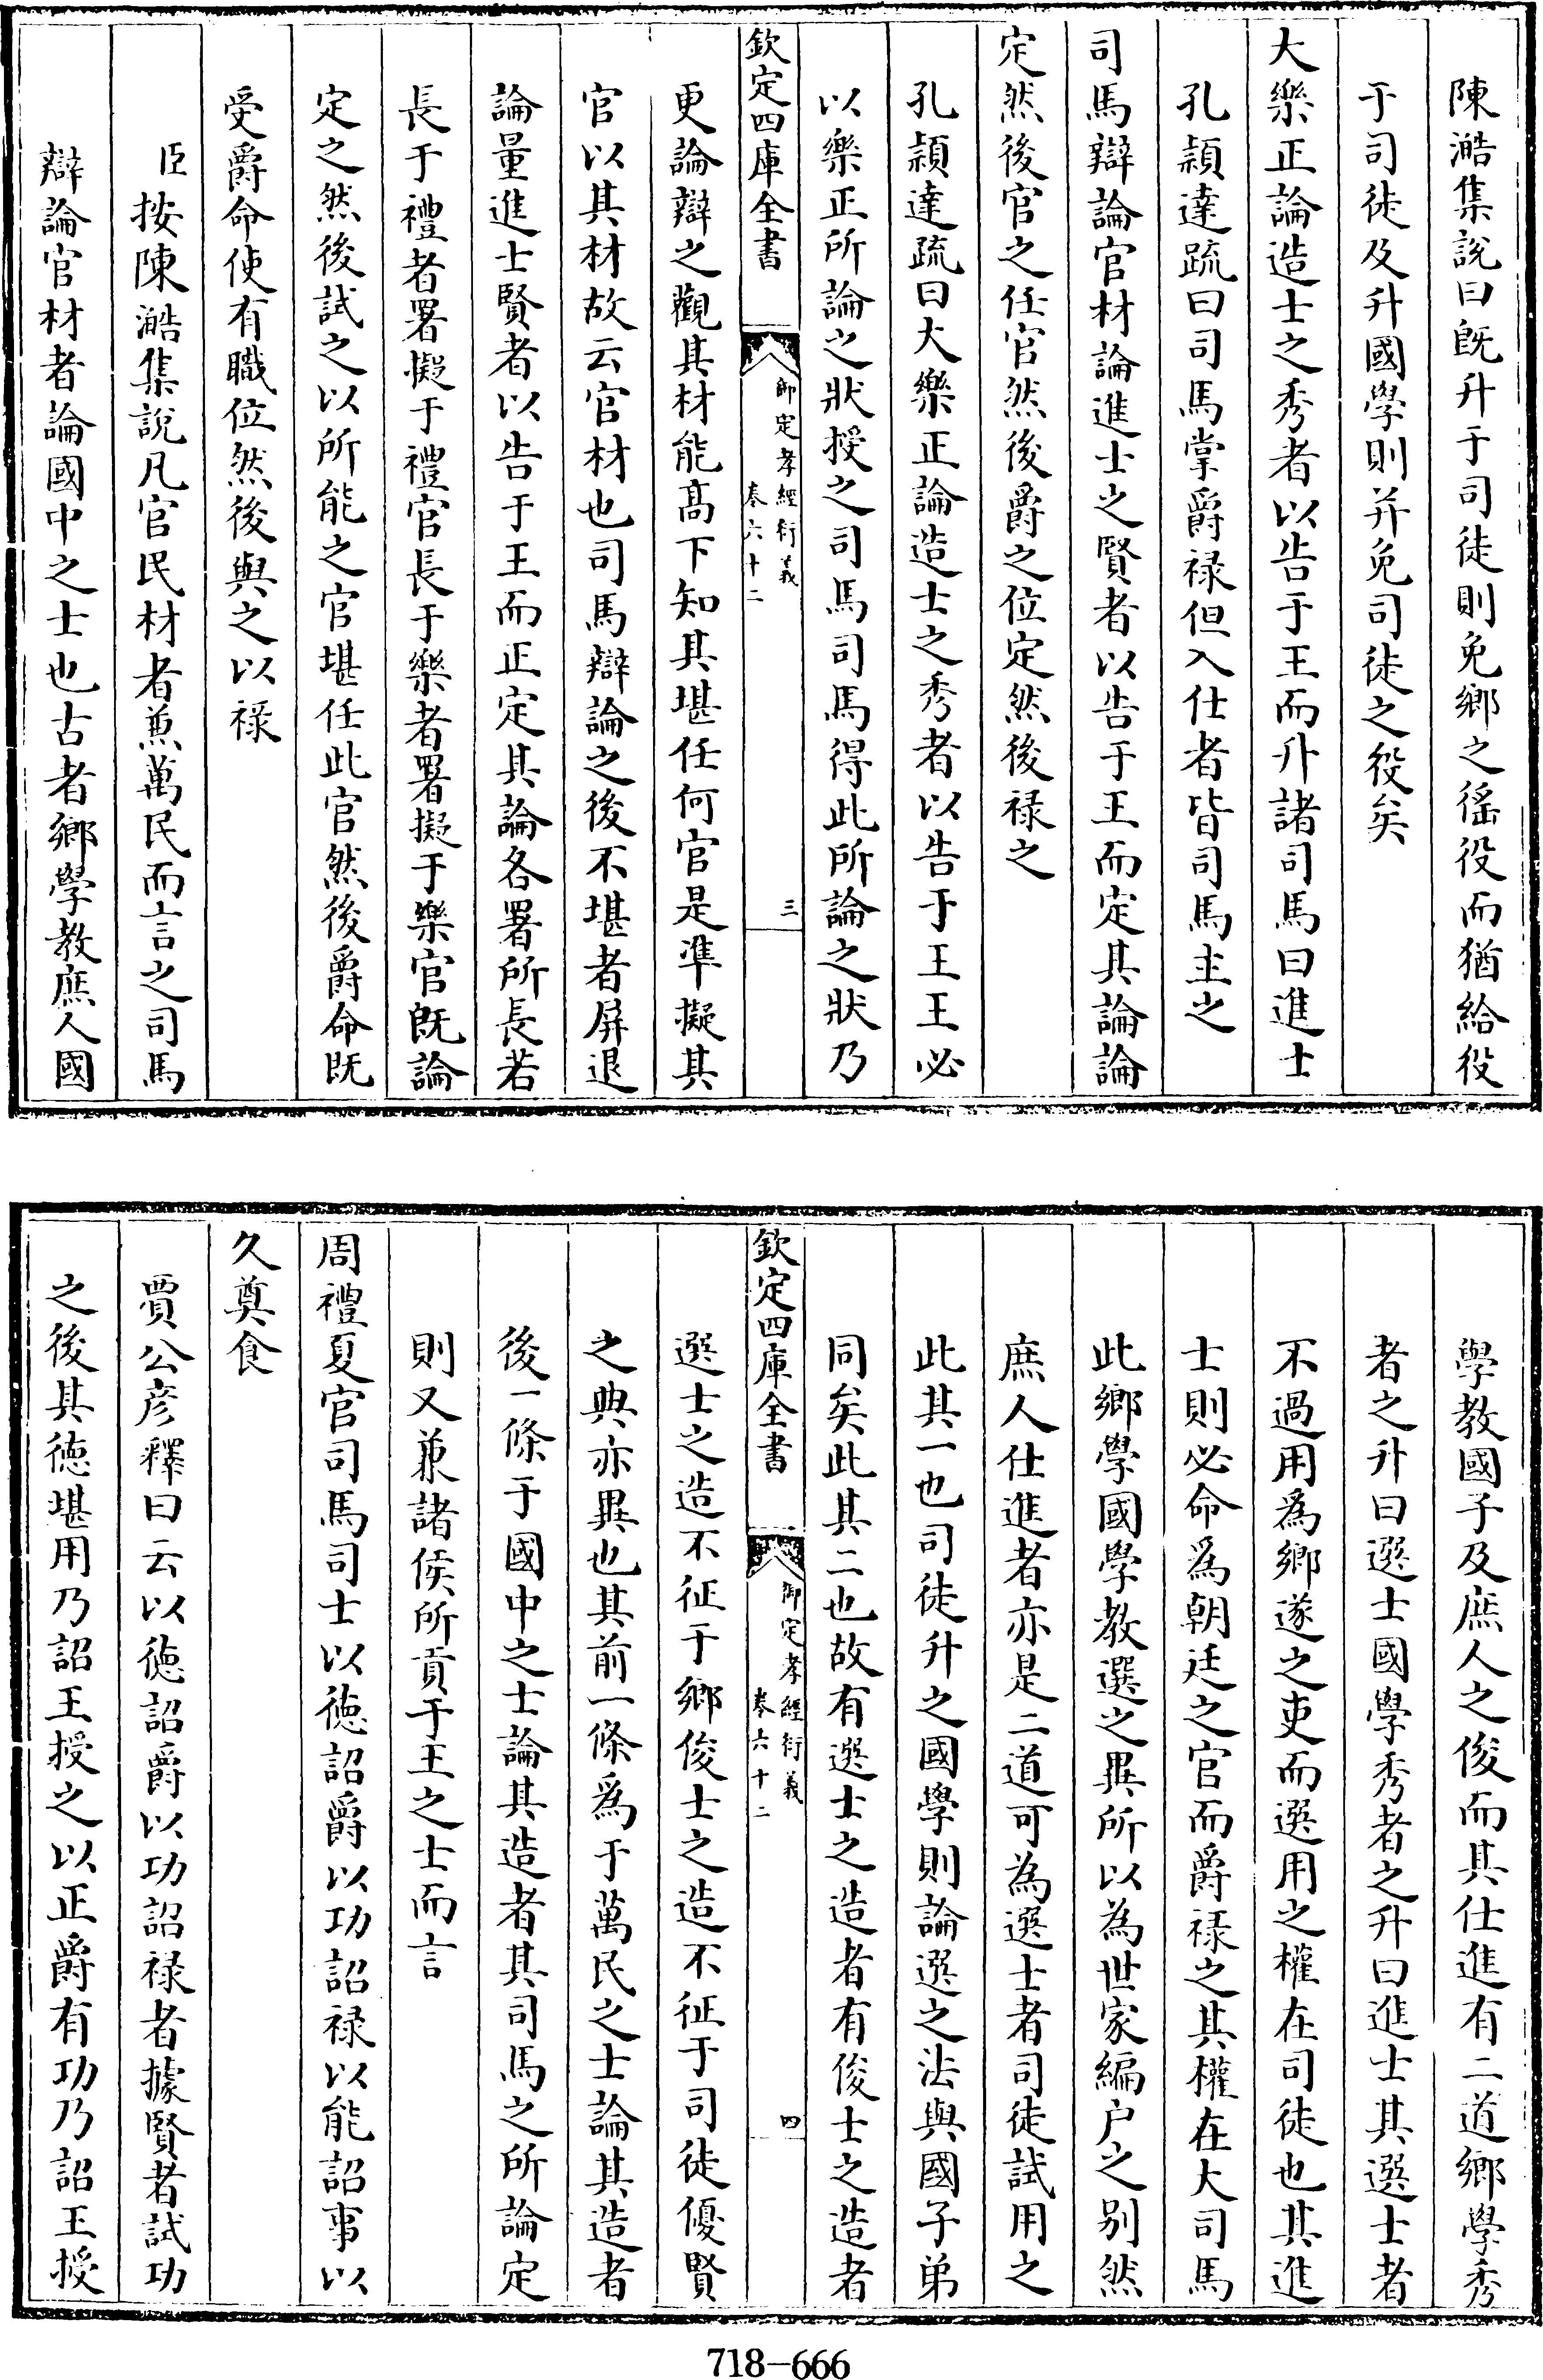 陳澔集說曰既升于司徒則免鄉之徭役而猶給役
于司徒及升國學則并免司徒之役矣
大樂正論造士之秀者以告于王而升諸司馬曰進士
孔穎達疏曰司馬掌爵祿但入仕者皆司馬主之
司馬辯論官材論進士之賢者以告于王而定其論論
定然後官之任官然後爵之位定然後祿之
孔穎達疏曰大樂正論造士之秀者以告于王王必
以樂正所論之狀授之司馬司馬得此所論之狀乃
欽定四庫全書
御定孝經衍義
卷六十二
三
更論辯之觀其材能髙下知其堪任何官是凖擬其
官以其材故云官材也司馬辯論之後不堪者屏退
論量進士賢者以告于王而正定其論各署所長若
長于禮者署擬于禮官長于樂者署擬于樂官既論
定之然後試之以所能之官堪任此官然後爵命既
受爵命使有職位然後與之以祿
臣按陳澔集說凡官民材者兼萬民而言之司馬
辯論官材者論國中之士也古者鄉學教庶人國
學教國子及庶人之俊而其仕進有二道鄉學秀
者之升曰選士國學秀者之升曰進士其選士者
不過用爲鄉遂之吏而選用之權在司徒也其進
士則必命爲朝廷之官而爵祿之其權在大司馬
此鄉學國學教選之異所以為世家編户之别然
庶人仕進者亦是二道可為選士者司徒試用之
此其一也司徒升之國學則論選之法與國子弟
同矣此其二也故有選士之造者有俊士之造者
欽定四庫全書
御定孝經衍義
卷六十二
四
選士之造不征于鄉俊士之造不征于司徒優賢
之典亦異也其前一條爲于萬民之士論其造者
後一條于國中之士論其造者其司馬之所論定
則又兼諸侯所貢于王之士而言
周禮夏官司馬司士以徳詔爵以功詔祿以能詔事以
久奠食
賈公彦釋曰云以徳詔爵以功詔祿者據賢者試功
之後其徳堪用乃詔王授之以正爵有功乃詔王授
718-666